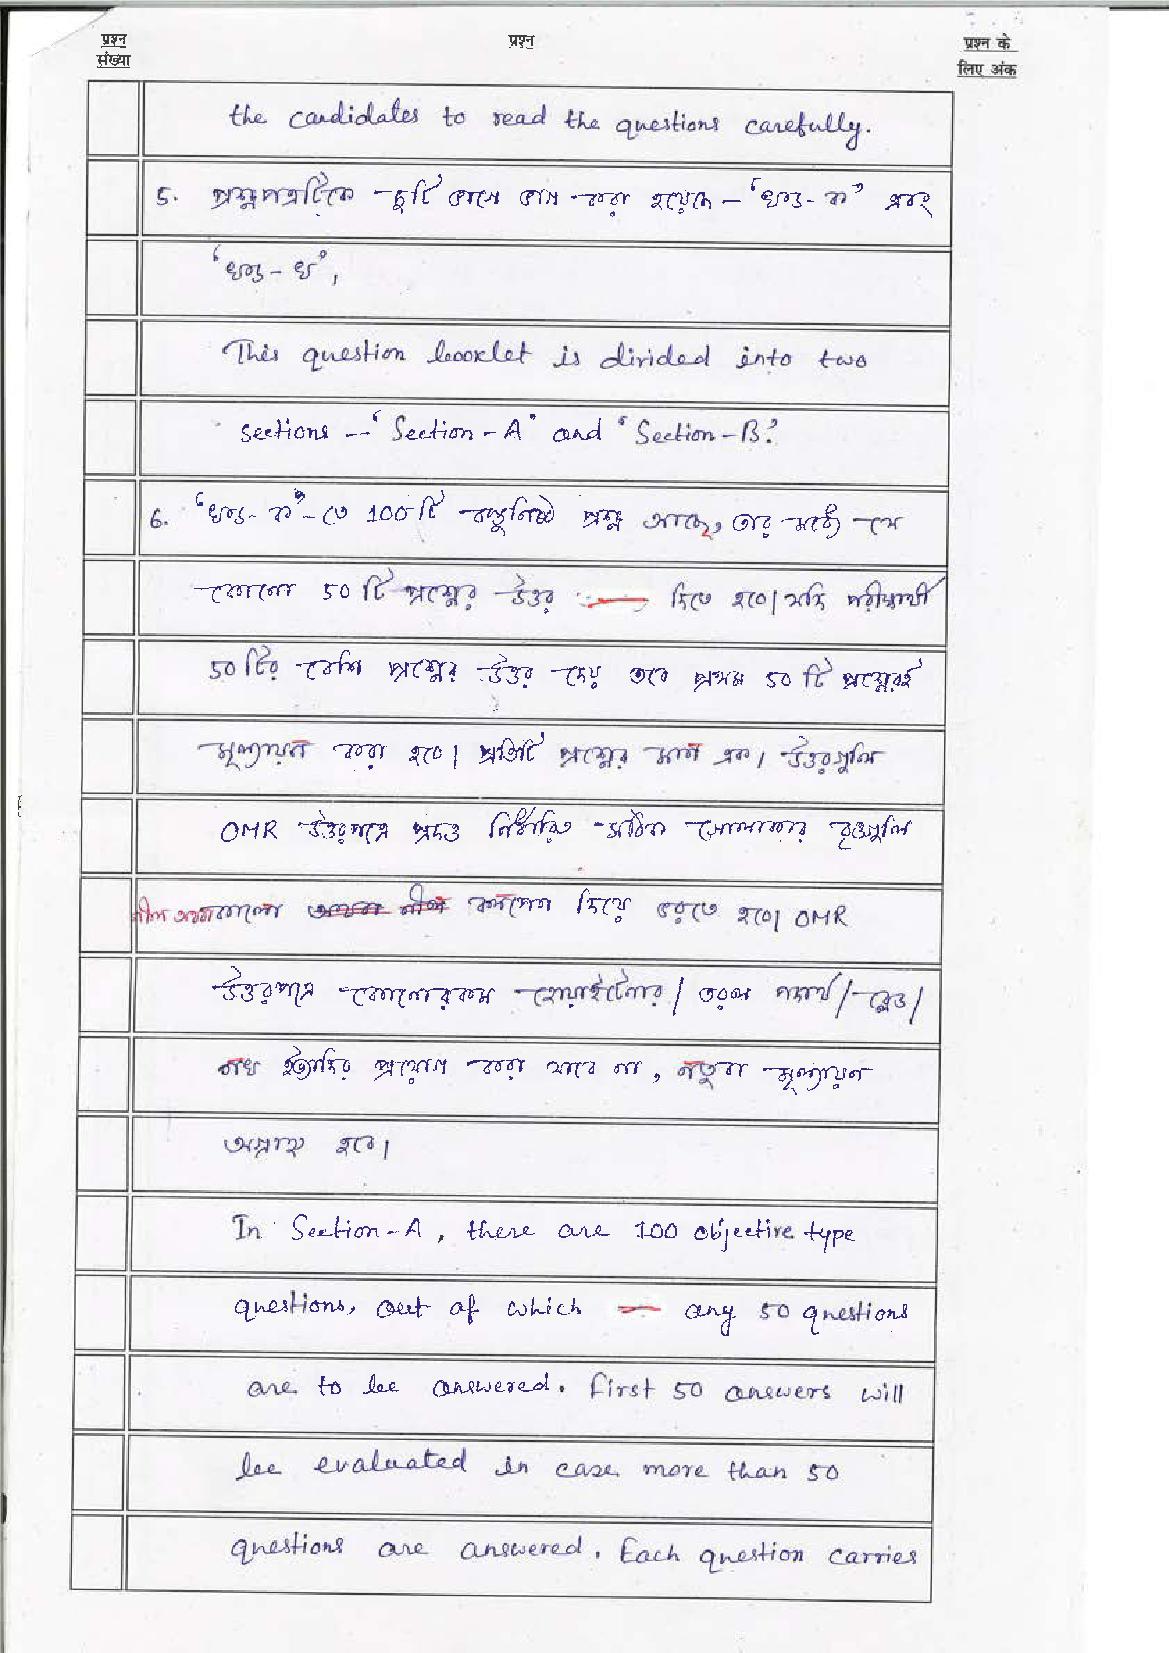 प्रश्न संख्या
प्रश्न
प्रश्न के लिए अंक
the candidates to read the questions carefully.
5. প্রশ্নপত্রটিকে দুটি ভাগে ভাগ করা হয়েছে – 'খণ্ড- ক' এবং
'খণ্ড – খ',
This question booklet is divided into two
sections – 'Section - A' and 'Section - B'.
6. 'খণ্ড- ক' - তে 100 টি বস্তুনিষ্ঠ প্রশ্ন আছে, তার মধ্যে যে
কোনো 50 টি প্রশ্নের উত্তর দিতে হবে। যদি পরীক্ষার্থী
50 টির বেশি প্রশ্নের উত্তর দেয় তবে প্রথম 50 টি প্রশ্নেরই
মূল্যায়ন করা হবে। প্রতিটি প্রশ্নের মান এক। উত্তরগুলি
OMR উত্তরপত্রে প্রদত্ত নির্ধারিত সঠিক গোলাকার বৃত্তগুলি
নীল অথবা কালো অথবা নীল কলপেন দিয়ে ভরতে হবে। OMR
উত্তরপত্রে কোনোরকম হোয়াইটেনার / তরল পদার্থ / ব্লেড /
নখ ইত্যাদির প্রয়োগ করা যাবে না, নতুবা মূল্যায়ন
অগ্রাহ্য হবে।
In Section - A, there are 100 objective type
questions, out of which any 50 questions
are to be answered. First 50 answers will
be evaluated in case more than 50
questions are answered. Each question carries